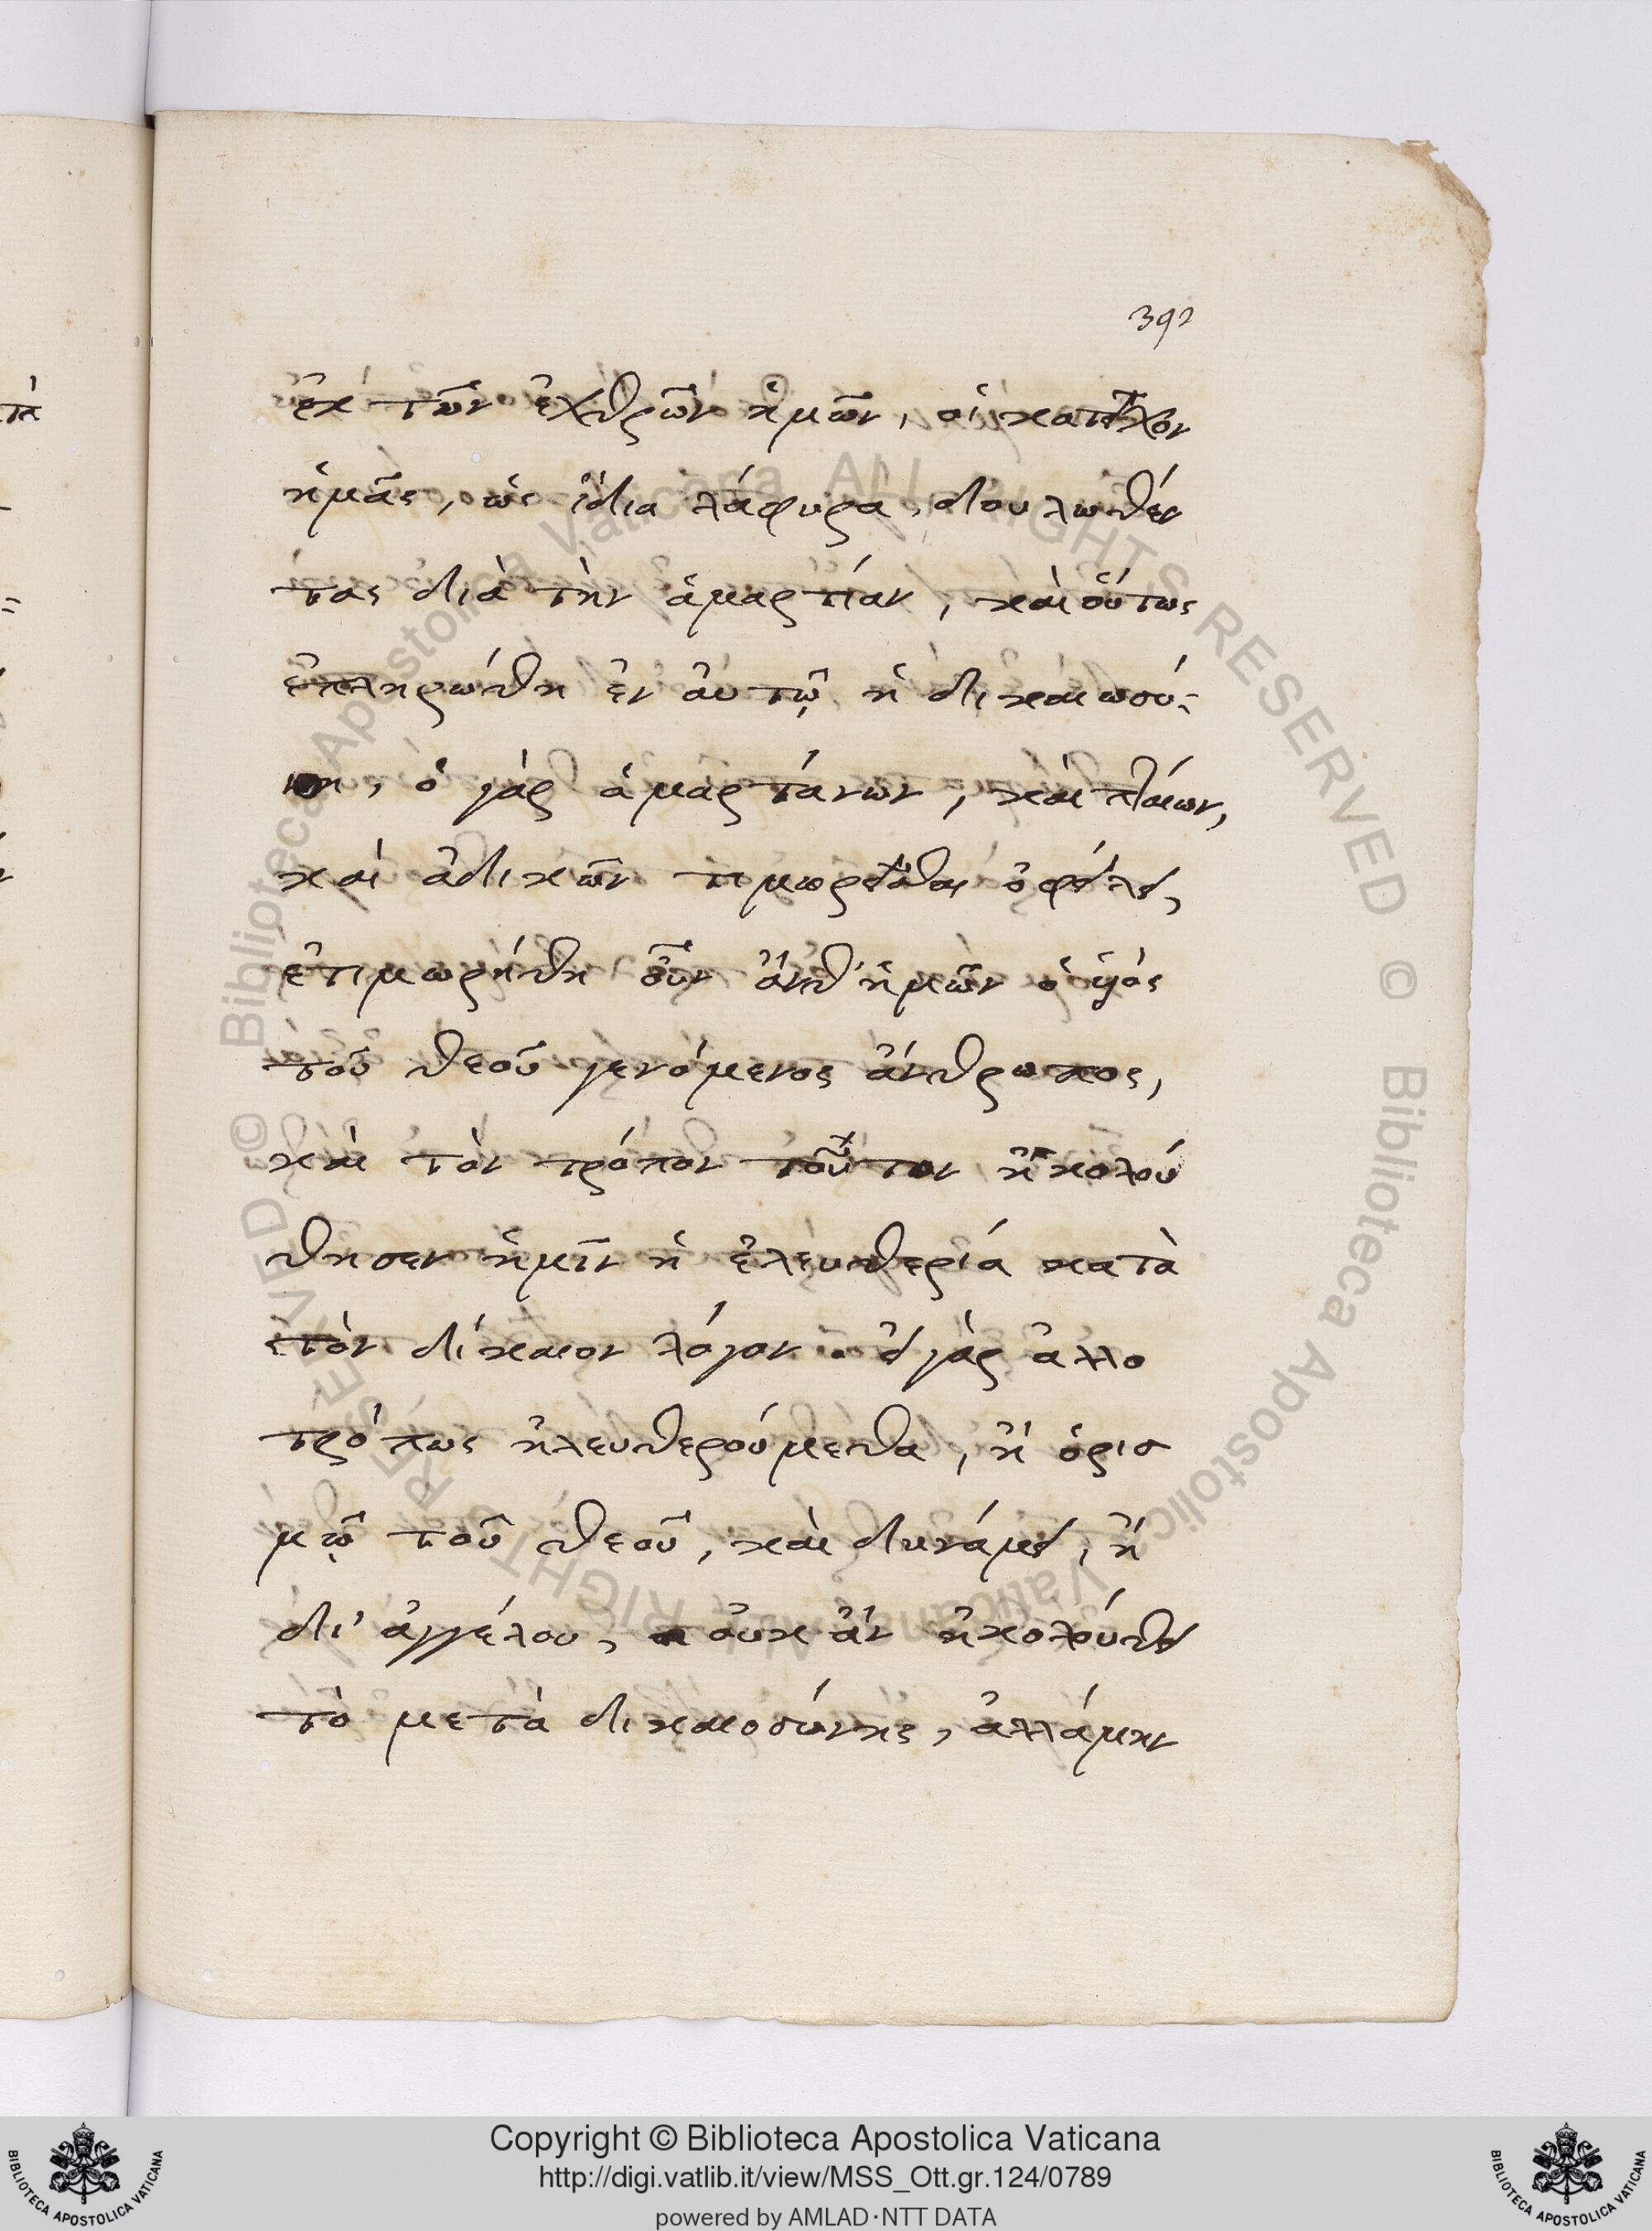 392
ἐκ τῶν ἐχθρῶν ἡμῶν, οἱ κατεῖχον
ἡμᾶς, ὡς ἴδια λάφυρα, δουλωθέν
τας διὰ τὴν ἁμαρτίαν, καὶ οὕτως
ἐπληρώθη ἐν αὐτῷ ἡ δικαιωσύ-
νη, ὁ γὰρ ἁμαρτάνων, καὶ πλαίων,
καὶ ἀδικῶν τιμωρεῖσθαι ὀφείλει,
ἐτιμωρήθη οὖν ἀνθ' ἡμῶν ὁ υἱὸς
τοῦ θεοῦ γενόμενος ἄνθρωπος,
καὶ τὸν τρόπον τοῦτον ἠκολού
θησεν ἡμῖν ἡ ἐλευθερία κατὰ
τὸν δίκαιον λόγον. εἰ γὰρ ἀλλο
τρόπως ἠλευθερούμεθα, ἢ ὁρισ
μῷ τοῦ θεοῦ, καὶ δυνάμει, ἢ
δι' ἀγγέλου, οὐκ ἂν ἠκολούθει
τὸ μετὰ δικαιοσύνης, ἀλλάμην
Copyright © Biblioteca Apostolica Vaticana
http://digi.vatlib.it/view/MSS_Ott.gr.124/0789
powered by AMLAD·NTT DATA